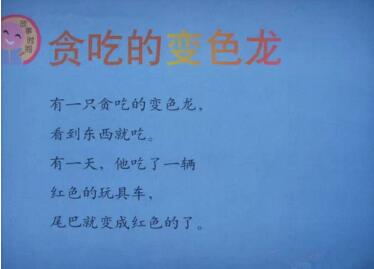 故事时间
贪吃的变色龙
有一只贪吃的变色龙，
看到东西就吃。
有一天，他吃了一辆
红色的玩具车，
尾巴就变成红色的了。